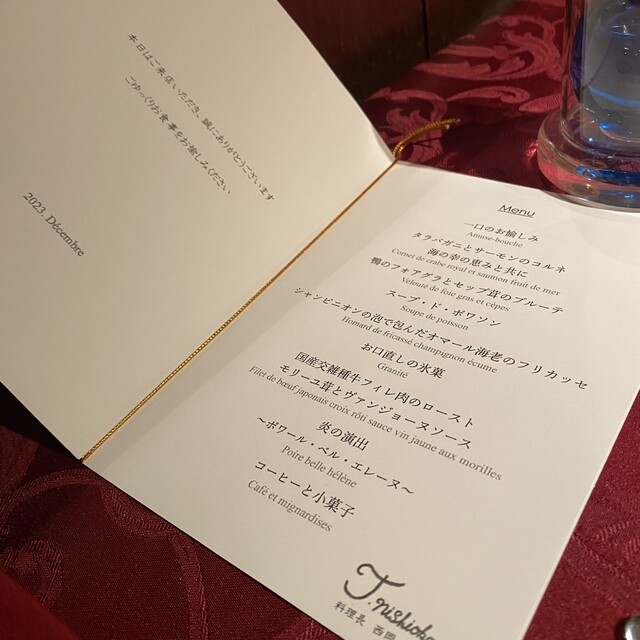 本日はご来店いただき、誠にありがとうございます
ごゆっくりお食事をお愉しみください
2023. Décembre
Menu
一口のお愉しみ
Amuse-bouche
タラバガニとサーモンのコルネ
海の幸の恵みと共に
Cornet de crabe royal et saumon fruit de mer
鴨のフォアグラとセップ茸のブルーテ
Velouté de foie gras et cèpes
スープ・ド・ポワソン
Soupe de poisson
シャンピニオンの泡で包んだオマール海老のフリカッセ
Homard de fricassé champignon écume
お口直しの氷菓
Granité
国産交雑種牛フィレ肉のロースト
モリーユ茸とヴァンジョーヌソース
Filet de bœuf japonais croix rôti sauce vin jaune aux morilles
炎の演出
～ポワール・ベル・エレーヌ～
Poire belle hélène
コーヒーと小菓子
Café et mignardises
T. nishioka
料理長 西岡